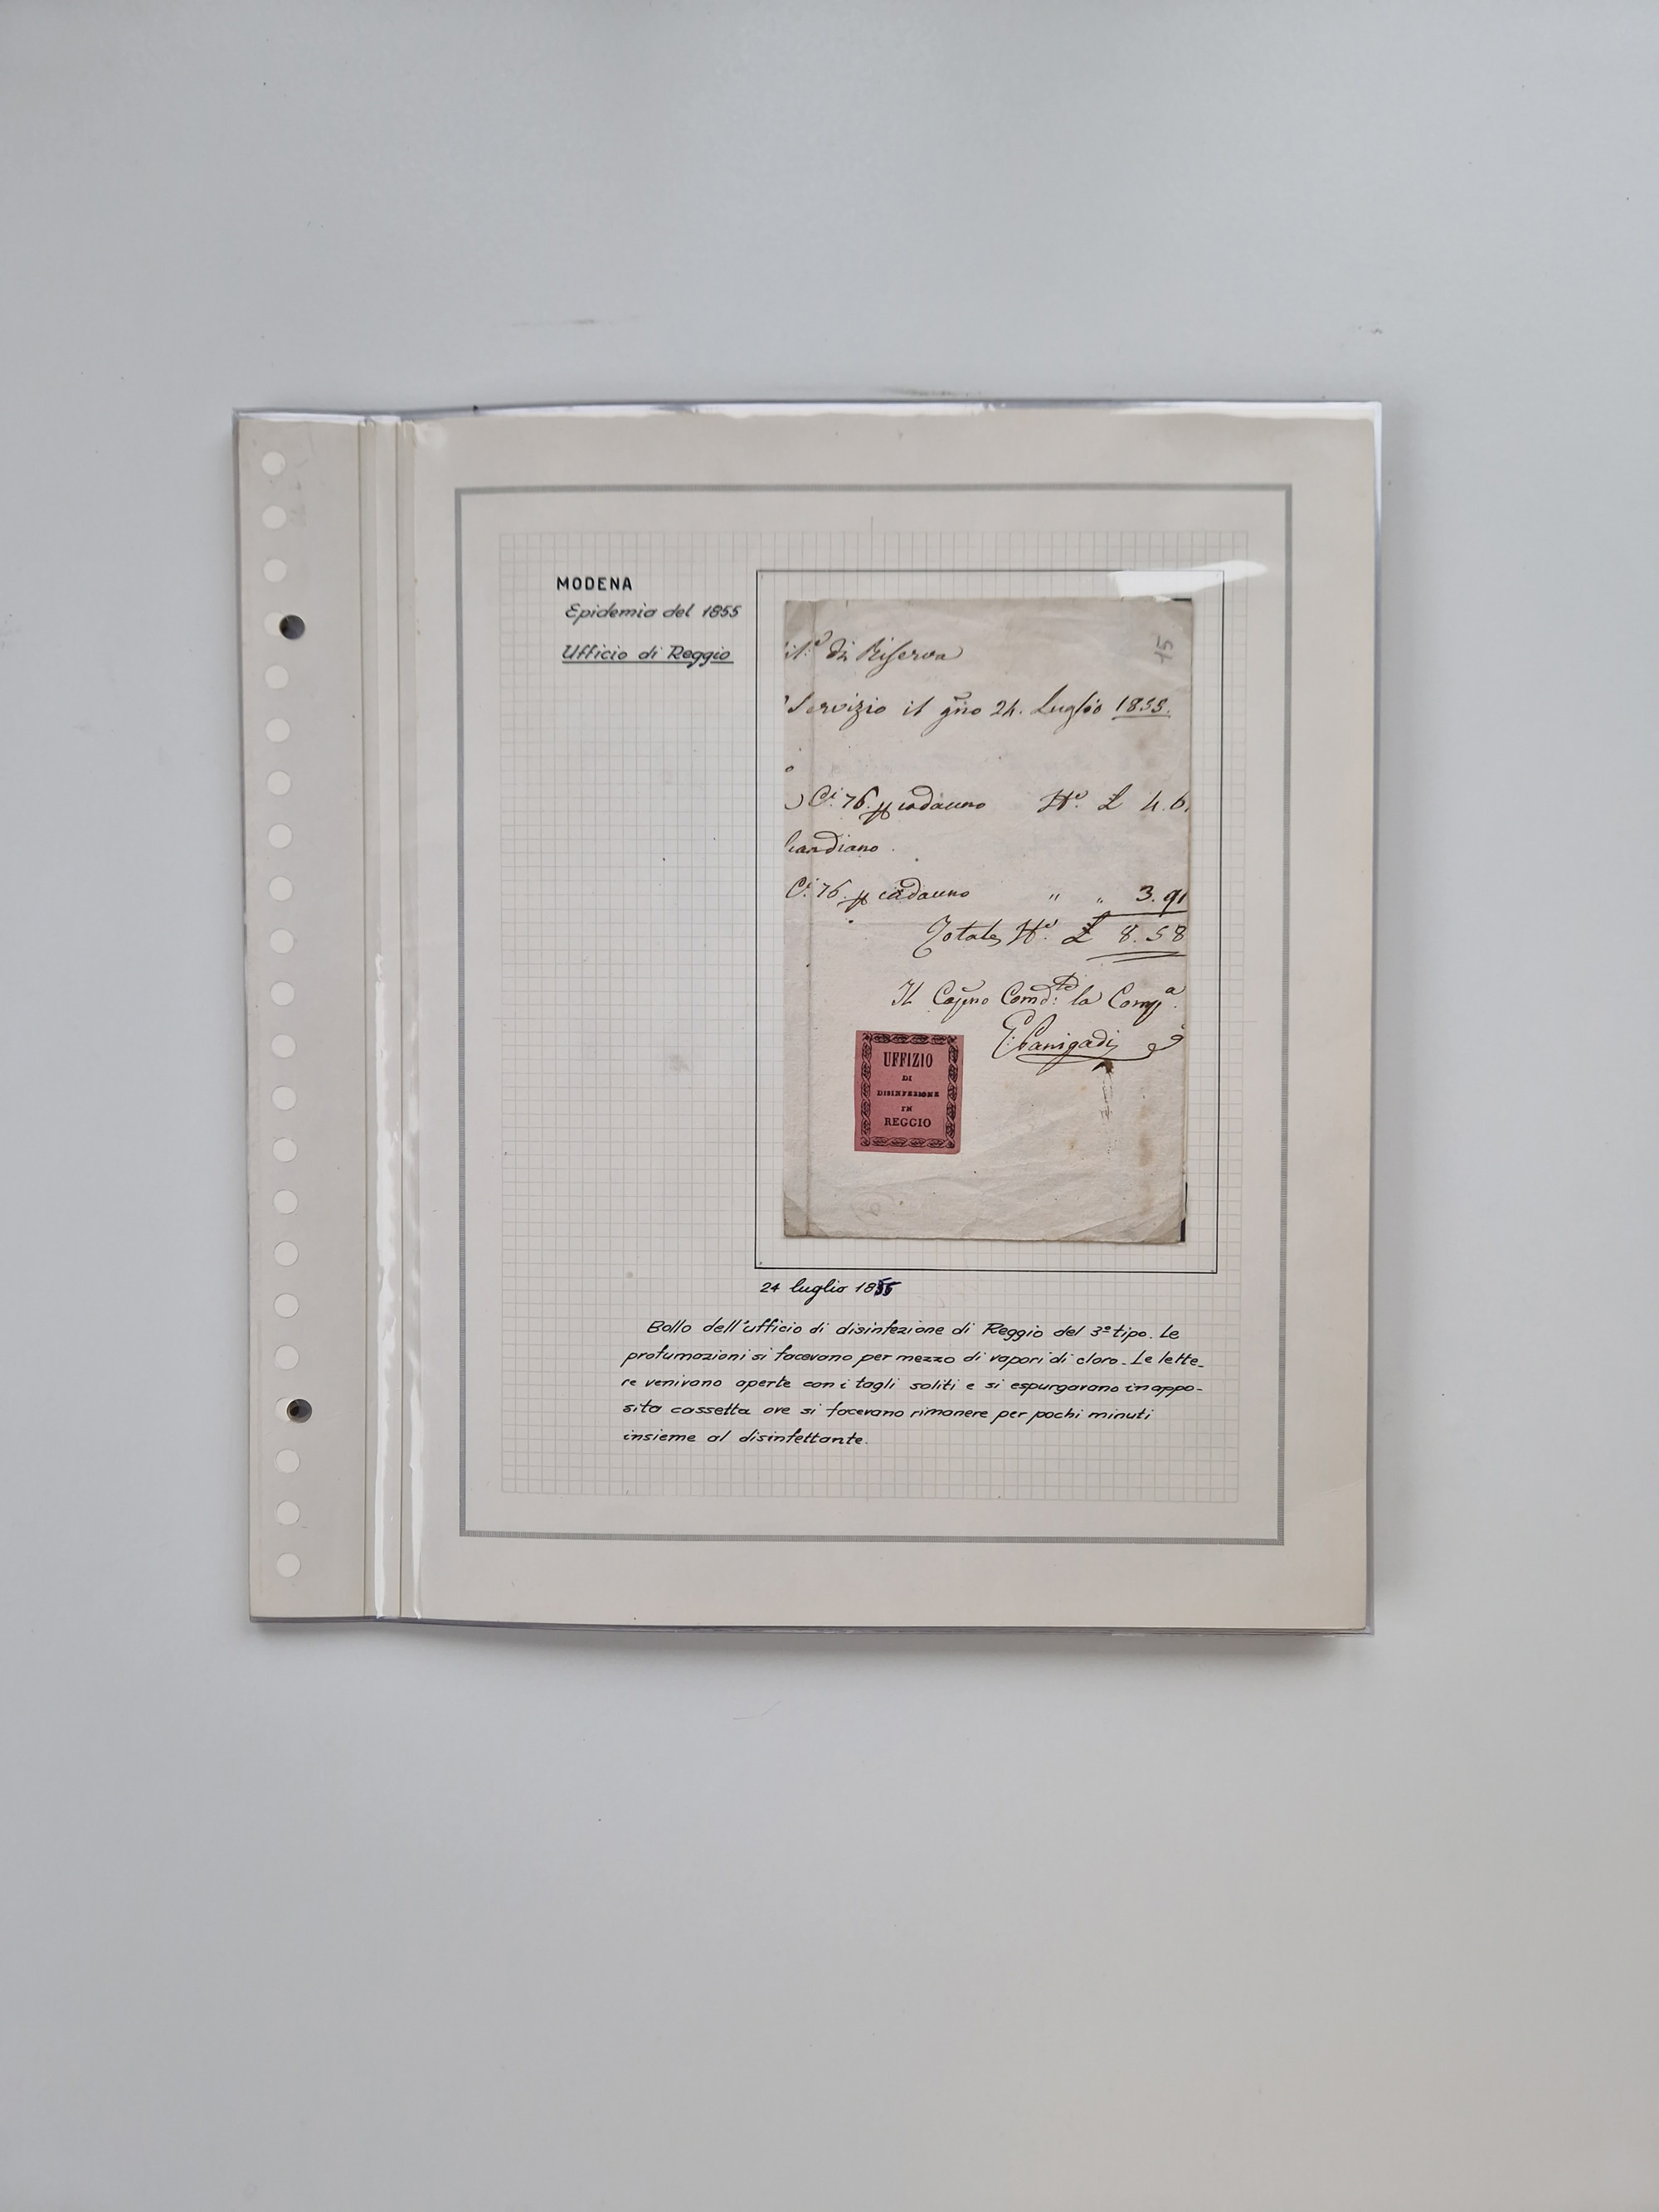 MODENA
Epidemia del 1855
Ufficio di Reggio
di Riserva
15
Servizio il gno 24. Luglio 1855.
Ci 76. cadauno £ 4.6
andiano.
Ci 76. cadauno " " 3.91
Totale £ 8.58
Il Capno Comd: la Compa.
UFFIZIO
DI
DISINFEZIONE
IN
REGGIO
24 luglio 1855
Bollo dell'ufficio di disinfezione di Reggio del 3º tipo. Le
profumazioni si facevano per mezzo di vapori di cloro. Le lette-
re venivano aperte con i tagli soliti e si espurgavano in appo-
sita cassetta ove si facevano rimanere per pochi minuti
insieme al disinfettante.